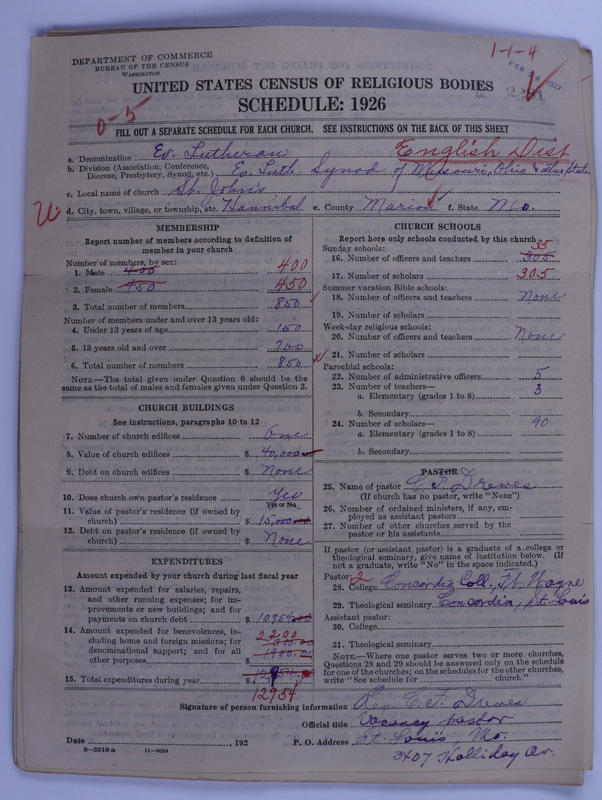 1-1-4
DEPARTMENT OF COMMERCE
BUREAU OF THE CENSUS
WASHINGTON
FEB 1927
UNITED STATES CENSUS OF RELIGIOUS BODIES
SCHEDULE: 1926
0-5
FILL OUT A SEPARATE SCHEDULE FOR EACH CHURCH. SEE INSTRUCTIONS ON THE BACK OF THIS SHEET
a. Denomination Ev. Lutheran English Dist
b. Division (Association, Conference, Diocese, Presbytery, Synod, etc.) Ev. Luth. Synod of Missouri, Ohio & other States
c. Local name of church St. John's
d. City, town, village, or township, etc. Hannibal e. County Marion f. State Mo.
MEMBERSHIP
Report number of members according to definition of
member in your church
Number of members, by sex:
1. Male 400 400
2. Female 450 450
3. Total number of members 850
Number of members under and over 13 years old:
4. Under 13 years of age 150
5. 13 years old and over 700
6. Total number of members 850
NOTE.—The total given under Question 6 should be the
same as the total of males and females given under Question 3.
CHURCH BUILDINGS
See instructions, paragraphs 10 to 12
7. Number of church edifices One
8. Value of church edifices $ 40,000
9. Debt on church edifices $ None
10. Does church own pastor's residence Yes
Yes or No
11. Value of pastor's residence (if owned by
church) $ 15,000
12. Debt on pastor's residence (if owned by
church) $ None
EXPENDITURES
Amount expended by your church during last fiscal year
13. Amount expended for salaries, repairs,
and other running expenses; for im-
provements or new buildings; and for
payments on church debt $ 10754
14. Amount expended for benevolences, in-
cluding home and foreign missions; for
denominational support; and for all
other purposes $ 2200
15. Total expenditures during year $
12954
CHURCH SCHOOLS
Report here only schools conducted by this church
Sunday schools: 35
16. Number of officers and teachers 305
17. Number of scholars 305
Summer vacation Bible schools:
18. Number of officers and teachers None
19. Number of scholars
Week-day religious schools:
20. Number of officers and teachers None
21. Number of scholars
Parochial schools:
22. Number of administrative officers 5
23. Number of teachers—
a. Elementary (grades 1 to 8) 3
b. Secondary
24. Number of scholars— 90
a. Elementary (grades 1 to 8)
b. Secondary
PASTOR
25. Name of pastor C. F. Drewes
(If church has no pastor, write "None")
26. Number of ordained ministers, if any, em-
ployed as assistant pastors
27. Number of other churches served by the
pastor or his assistants
If pastor (or assistant pastor) is a graduate of a college or
theological seminary, give name of institution below. (If
not a graduate, write "No" in the space indicated.)
Pastor: 2
28. College Concordia Coll., Ft. Wayne
29. Theological seminary Concordia, St. Louis
Assistant pastor:
30. College
31. Theological seminary
NOTE.—Where one pastor serves two or more churches,
Questions 28 and 29 should be answered only on the schedule
for one of the churches; on the schedules for the other churches,
write "See schedule for church."
Signature of person furnishing information Rev. C. F. Drewes
Official title Vacancy pastor
Date , 192 P. O. Address St. Louis, Mo.
8-5518a 11-9034
3407 Halliday Av.